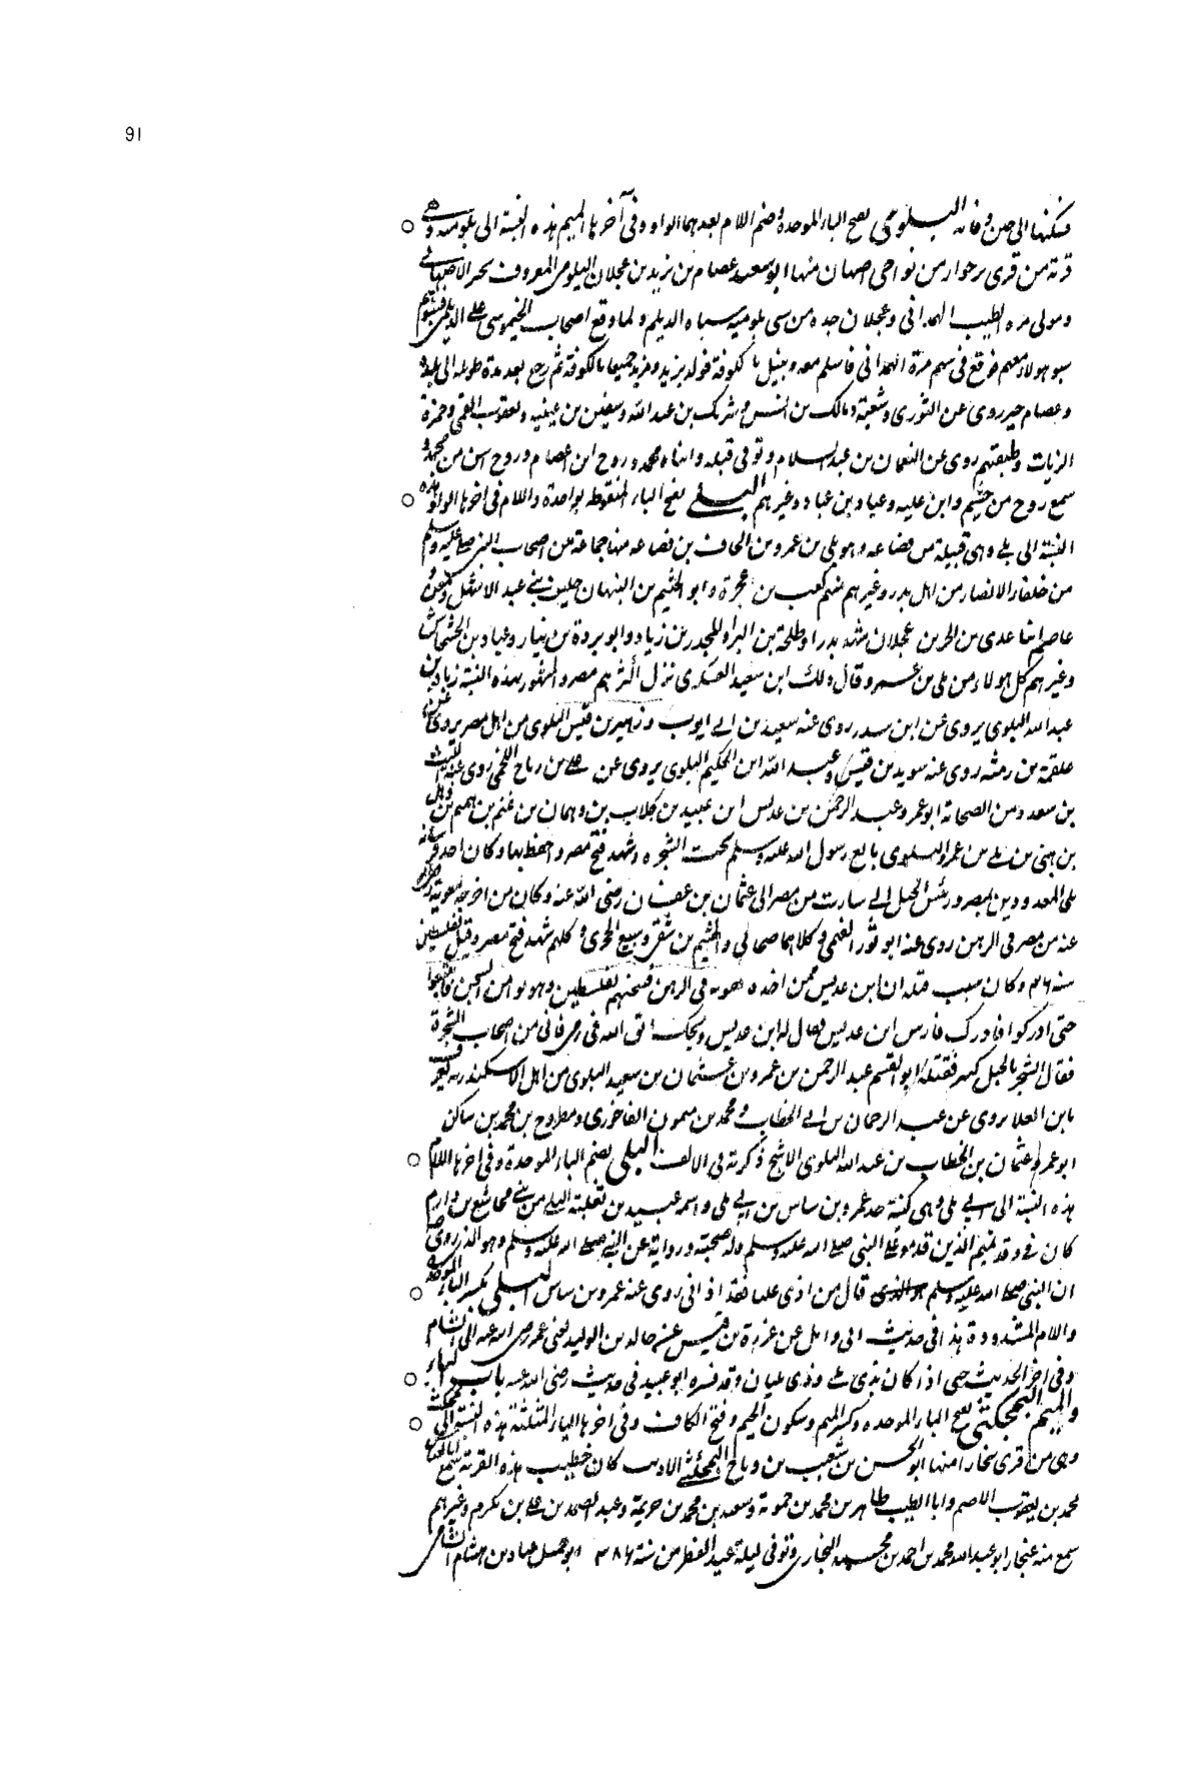 91
فسكنها الى حين وفاته البلومي بفتح الباء الموحدة وضم اللام بعدهما الواو وفي آخرها الميم هذه النسبة الى بلومية وهي
قرية من قرى برخوار من نواحي اصبهان منها ابو سعيد عصام بن يزيد بن عجلان البلومي المعروف بجبر الاصبهاني
ومولى مرة الطيب الهمداني وعجلان جده من سبي بلومية سباه الديلم ولما وقع اصحاب ابي موسى على الديلم
سبو هولاء معهم فوقع في سهم مرة الهمداني فاسلم معه وبنيل بالكوفة فولد يزيد ومزيد جميعا بالكوفة ثم رجع بعد مدة طويلة الى بلده
وعصام جبر روى عن الثوري وشعبة ومالك بن انس وشريك بن عبد الله وسفين بن عيينة ويعقوب القمي وحمزة
الزيات وطبقتهم روى عن النعمان بن عبد السلام وتوفي قبله وابناه محمد وروح ابن عصام وروح اسن من محمد
سمع روح من هشيم وابن علية وعباد بن عباد وغيرهم البلوي بفتح الباء المنقوطة بواحدة واللام في اخرها الواو هذه
النسبة الى بلي وهي قبيلة من قضاعة وهو بلي بن عمرو بن الحاف بن قضاعة منها جماعة من اصحاب النبي صلى عليه وسلم
من حلفاء الانصار من اهل بدر وغيرهم منهم كعب بن عجرة وابو الهيثم بن التيهان حليف بني عبد الاشهل ومعن
عاصم ابنا عدي بن الجد بن عجلان شهد بدرا وطلحة بن البراء والمجدر بن زياد وابو بردة بن نيار وعباد بن الخشخاش
وغيرهم كل هولاء من بلي بن عمرو قال ذلك ابن سعيد العسكري نزل اكثرهم مصر والمشهور بهذه النسبة زياد بن
عبد الله البلوي يروي عن ابن سندر روى عنه سعيد بن ابي ايوب وزهير بن قيس البلوي من اهل مصر يروي عن
علقمة بن رمثة روى عنه سويد بن قيس وعبد الله ابن الحكيم البلوي يروي عن علي بن رباح اللخمي روى عنه الليث
بن سعد ومن الصحابة ابو عمرو عبد الرحمن بن عديس ابن عبيد بن كلاب بن دهمان بن غنم بن هميم بن ذهل
بن هني بن بلي بن عمرو البلوي بايع رسول الله عليه وسلم تحت الشجرة وشهد فتح مصر واختط بها وكان احد فرسان
بلي المعدودين بمصر ورئيس الخيل التي سارت من مصر الى عثمان بن عفان رضي الله عنه وكان من اخرجه معوية رضي الله
عنه من مصر في الرهن روى عنه ابو ثور الفهمي وكلاهما صحابي والهيثم بن شفي وسبيع الحجري وكلهم شهد فتح مصر وقتل بفلسطين
سنة ٣٦ وكان سبب قتله ان ابن عديس ممن اخذه معوية في الرهن فسجنهم بفلسطين فهربوا من السجن فاتبعوا
حتى ادركوا فادرك فارس ابن عديس فقال له ابن عديس ويحك اتق الله في دمي فاني من اصحاب الشجرة
فقال الشجر بالجبل كثير فقتله ابو القسم عبد الرحمن بن عمرو بن عثمان بن سعيد البلوي من اهل الاسكندرية يعرف
بابن العلا يروي عن عبد الرحمان بن ابي الخطاب ومحمد بن ميمون الفاخوري ومطروح بن محمد بن شاكر
ابو عمرو عثمان بن الخطاب بن عبد الله البلوي الاشج ذكرته في الالف البلي بضم الباء الموحدة وفي اخرها اللام
هذه النسبة الى ابي بلي وهي كنية جد عمرو بن شاس بن ابي بلي واسمه عبيد بن ثعلبة البلي من بني مجاشع بن دارم
كان في وفد تميم الذين قدموا على النبي صلى الله عليه وسلم وله صحبة ورواية عن النبي صلى الله عليه وسلم وهو الذي روى
ان النبي صلى الله عليه وسلم قال من اذى عليا فقد اذاني روى عنه عمرو بن شاس البلي بكسر الباء الموحدة
واللام المشددة هذا في حديث ابي وايل عن عزرة بن قيس عن خالد بن الوليد يعني عمر رضي الله عنه الى الشام
وفي اخر الحديث حتى اذا كان بذي بلي وذي بليان وقد فسره ابو عبيد في حديث رضي الله عنه باب الباء
والميم البمجكثي بفتح الباء الموحدة وكسر الميم وسكون الجيم وفتح الكاف وفي اخرها الثاء المثلثة هذه النسبة الى بمجكث
وهي من قرى بخارا منها ابو الحسن بن شعيب بن البمجكثي الاديب كان خطيب هذه القرية سمع
محمد بن يعقوب الاصم وابا الطيب طاهر بن محمد بن حموية وسعد بن محمد بن خزيمة وعبد الصمد بن علي بن مكرم وغيرهم
سمع منه غنجار ابو عبد الله محمد بن احمد بن محمد البخاري وتوفي ليلة عيد الفطر من سنة ٣٨٦ ابو سهل عباد بن هشام الشامي